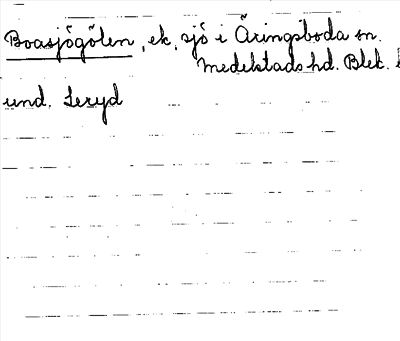 Boasjögölen, ek. sjö i Äringsboda sn.
Medelstads hd. Blek. l
und. Leryd